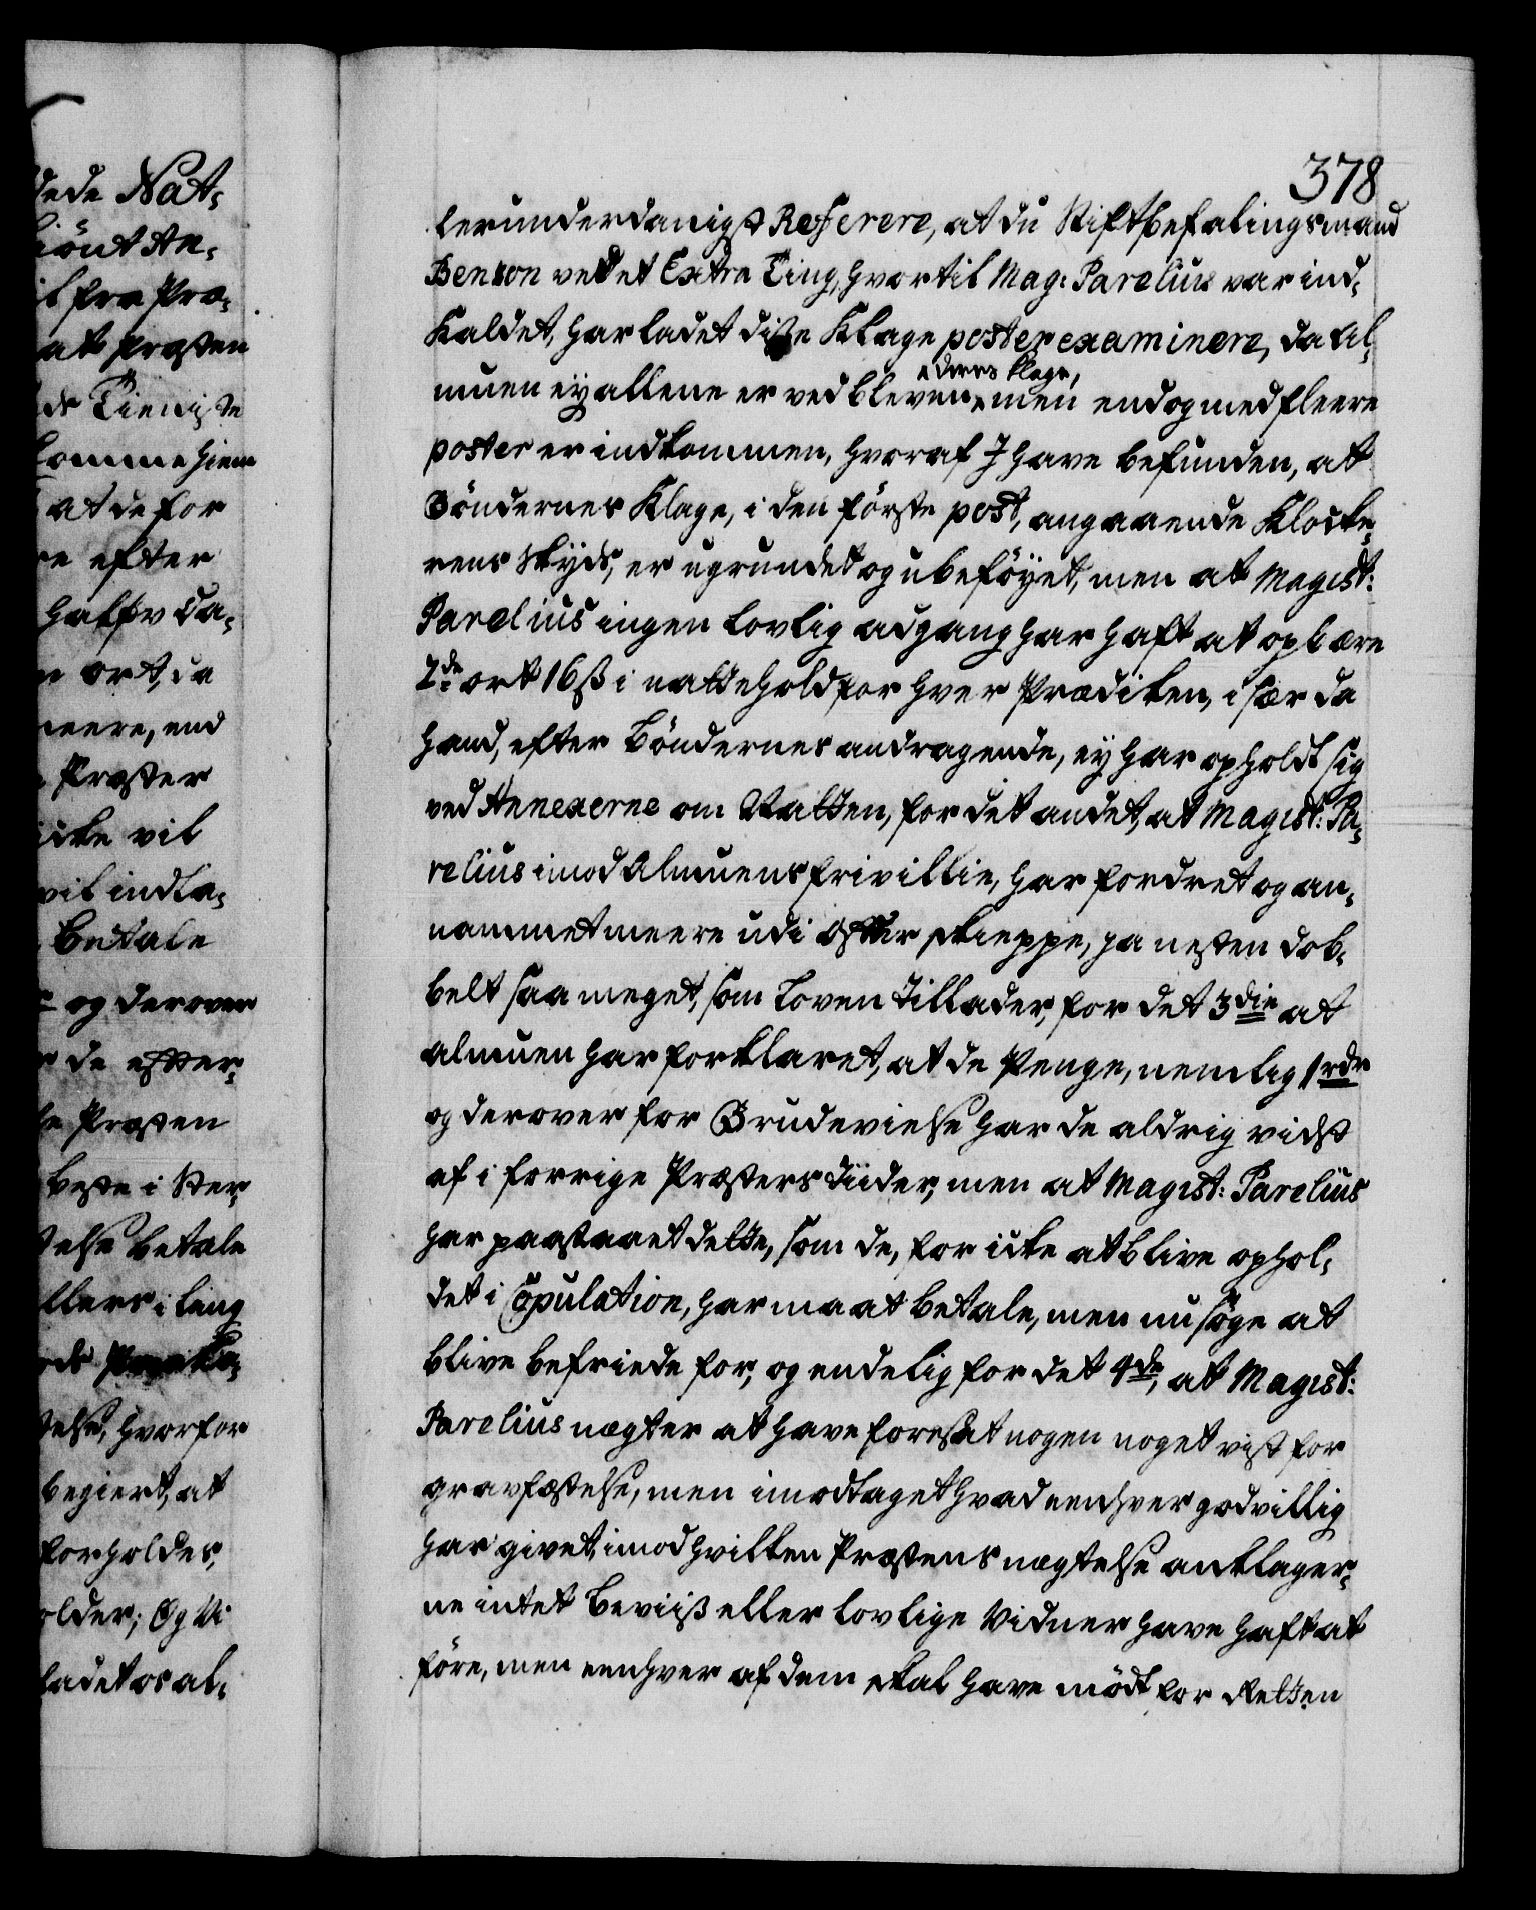 378
lerunderdanigst Referere, at du Stiftbefalingsmand
Benzon ved et Extra Ting, hvortil Mag: Parelius var ind-
kaldet, har ladet disse Klage poster examinere, da Al-
muen ey allene er ved bleven deres klage, men endog med fleere
poster er indkommen, hvoraf I have befunden, at
Böndernes Klage, i den förste post, angaaende Klocke-
rens Skyds, er ugrundet og ubeföyet, men at Magist:
Parelius ingen lovlig adgang har haft at opbære
2de ort 16 ß i natteholdfor hver Prædiken, i sær da
hand, efter Böndernes andragende, ey har opholdt sig
ved Annexerne om Natten, for det andet, at Magist: Pa-
relius imod Almuens frivillie, har fordret og an-
nammet meere udi Offer skieppe, ja nesten dob-
belt saa meget, som Loven tillader, for det 3die at
almuen har forklaret, at de Penge, nemlig 1 rdr
og derover for Brudevielse har de aldrig vidst
af i forrige Præsters tiider, men at Magist: Parelius
har paastaaet dette, som de, for icke at blive ophol-
det i Copulation, har maat betale, men nu söge at
blive befriede for, og endelig for det 4de, at Magist:
Parelius nægter at have foresat nogen noget vist for
gravfæstelse, men imodtaget hvad eenhver godvillig
har givet, imod hvilken Præstens nægtelse anklager-
ne intet Beviis eller lovlige Vidner have haft at
före, men eenhver af dem skal have mödt for Retten
dede Nat-
siönt An-
il fra Præ-
at Præsten
de Tieniste
komme hiem
at de for
re efter
halfv Da-
ort, da
meere, end
Præster
icke vil
vil indla-
Betale
og derover
de efter-
Præsten
beste i Ster
telse betale
llers i lang
telse, hvorfor
begiert, at
forholdes,
older; Og Vi
ladet os al-